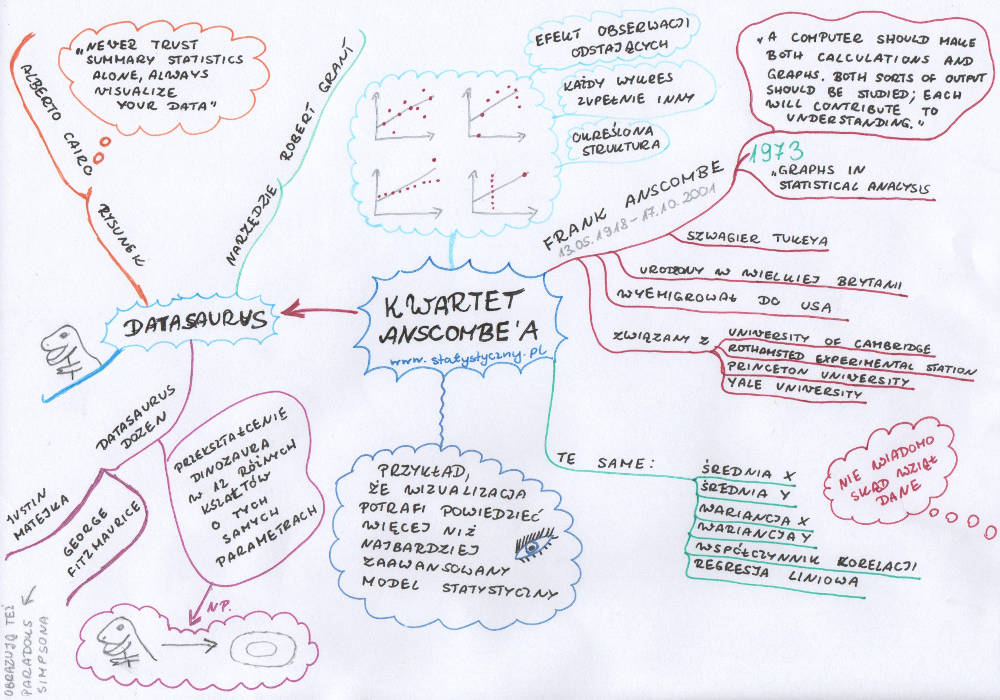 KWARTET
ANSCOMBE'A
www.statystyczny.pl
EFEKT OBSERWACJI
ODSTAJĄCYCH
KAŻDY WYKRES
ZUPEŁNIE INNY
OKREŚLONA
STRUKTURA
FRANK ANSCOMBE
13.05.1918 - 17.10.2001
„A COMPUTER SHOULD MAKE
BOTH CALCULATIONS AND
GRAPHS. BOTH SORTS OF OUTPUT
SHOULD BE STUDIED; EACH
WILL CONTRIBUTE TO
UNDERSTANDING."
1973
„GRAPHS IN
STATISTICAL ANALYSIS
SZWAGIER TUKEYA
URODZONY W WIELKIEJ BRYTANI
WYEMIGROWAŁ DO USA
ZWIĄZANY Z
UNIVERSITY OF CAMBRIDGE
ROTHAMSTED EXPERIMENTAL STATION
PRINCETON UNIVERSITY
YALE UNIVERSITY
TE SAME:
ŚREDNIA X
ŚREDNIA Y
WARIANCJA X
WARIANCJA Y
WSPÓŁCZYNNIK KORELACJI
REGRESJA LINIOWA
NIE WIADOMO
SKĄD WZIĄŁ
DANE
PRZYKŁAD,
ŻE WIZUALIZACJA
POTRAFI POWIEDZIEĆ
WIĘCEJ NIŻ
NAJBARDZIEJ
ZAAWANSOWANY
MODEL STATYSTYCZNY
DATASAURUS
RYSUNEK
ALBERTO CAIRO
„NEVER TRUST
SUMMARY STATISTICS
ALONE, ALWAYS
VISUALIZE
YOUR DATA"
NARZĘDZIE
ROBERT GRANT
DATASAURUS
DOZEN
JUSTIN
MATEJKA
GEORGE
FITZMAURICE
PRZEKSZTAŁCENIE
DINOZAURA
W 12 RÓŻNYCH
KSZAŁTÓW
O TYCH
SAMYCH
PARAMETRACH
NP.
OBRAZUJĄ TEŻ
PARADOKS
SIMPSONA